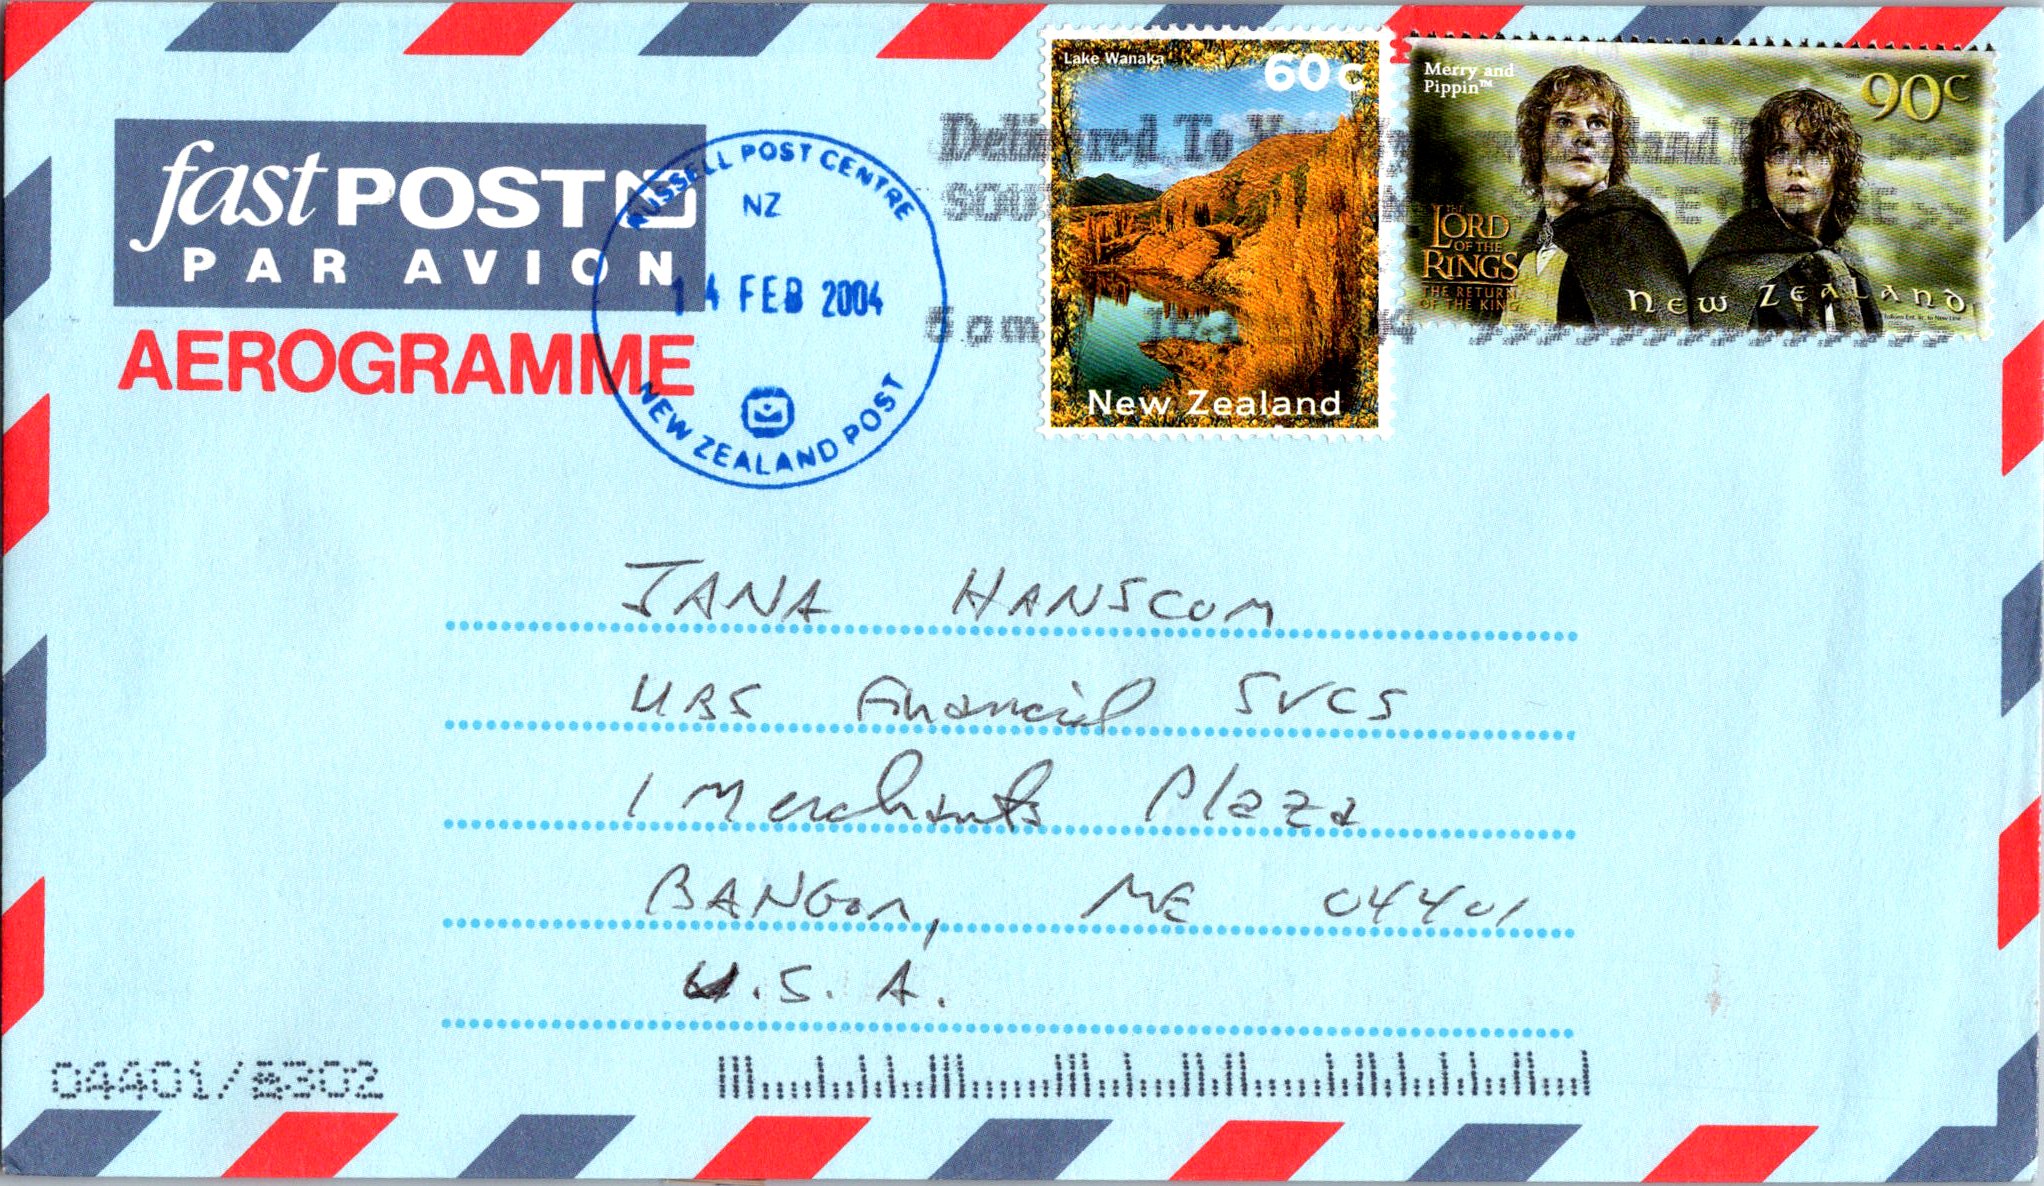 fastPOST
PAR AVION
AEROGRAMME
RUSSELL POST CENTRE
NZ
14 FEB 2004
NEW ZEALAND POST
Lake Wanaka
60c
New Zealand
Merry and
Pippin™
90c
THE
LORD
OF THE
RINGS
THE RETURN
OF THE KING
NEW ZEALAND
Delivered To
5am
JANA HANSCOM
UBS Financial SVCS
1 Merchants Plaza
BANGOR, ME 04401
U.S.A.
04401/